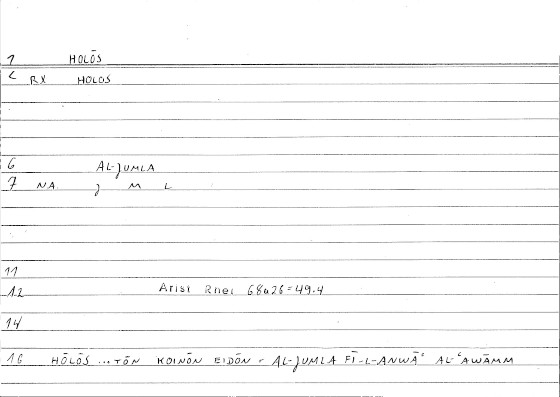 1 HOLŌS
2 RX HOLOS
6 AL-JUMLA
7 NA J M L
11
12 Arist Rhet 68a26=49.4
14
16 HÓLŌS ... TŌN KOINŌN EIDŌN = AL-JUMLA FĪ-L-ANWĀʿ AL-ʿAWĀMM